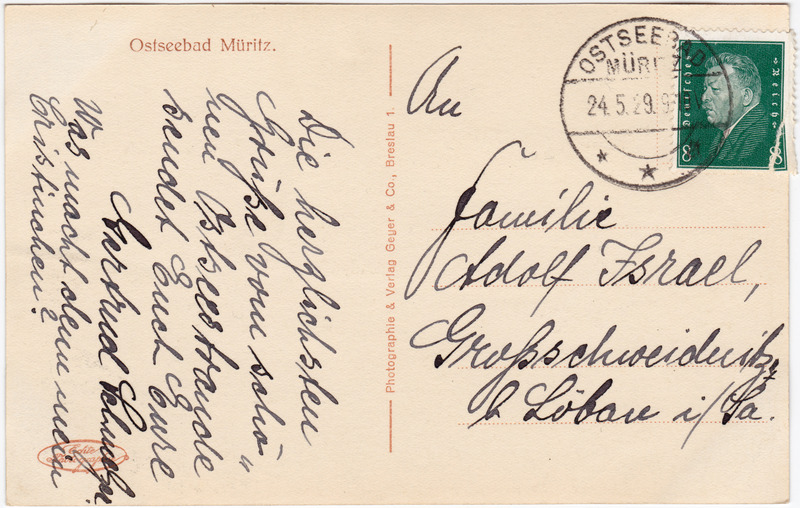 Ostseebad Müritz.
Die herzlichsten
Grüße vom schö-
nen Ostseestrande
sendet Euch Eure
Gertrud
Was macht denn mein
Photographie & Verlag Geyer & Co., Breslau 1.
OSTSEEBAD
MÜRITZ
24.5.29.9
Deutsches Reich
8
8
An
Familie
Adolf Israel,
Großschweidnitz
b Löbau i/Sa.